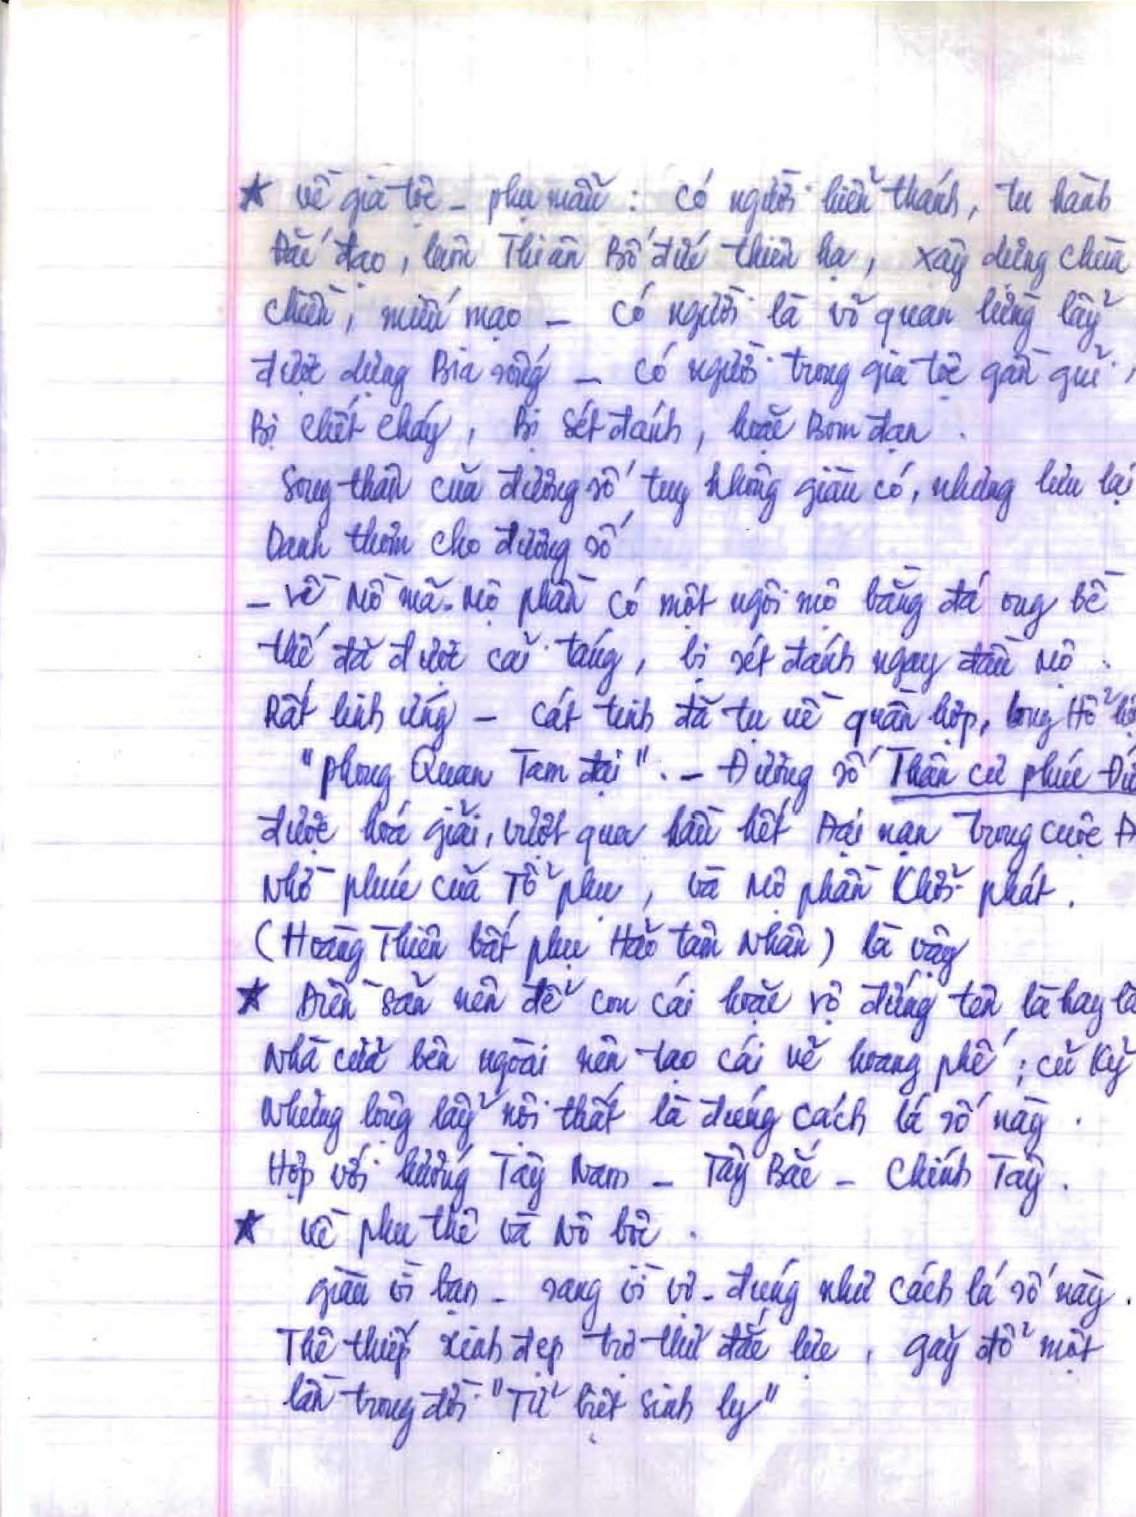 ★ Về gia tộc - phụ mẫu : có người hiển thánh, tu hành
Đắc đạo, làm Thiên Bố đức thiên hạ, xây dựng chùa
chiền, miếu mạo - có người là võ quan lừng lẫy
được dựng Bia sống - có người trong gia tộc gần gũi,
Bị chết cháy, Bị sét đánh, hoặc Bom đạn.
Song thân của đương số tuy không giàu có, nhưng lưu lại
Danh thơm cho đương số
- về Mồ mã. Mộ phần có một ngôi mộ bằng đá ong bề
thế đã được cải táng, bị sét đánh ngay đầu mộ.
Rất linh ứng - Cát tinh đã tụ về quần hợp, long Hổ
"phong Quan Tam đại". - Đương số Thân cư phúc Đức
được hoá giải, vượt qua hầu hết Đại nạn trong cuộc Đ
Nhờ phúc của Tổ phụ, và Mộ phần Khởi phát.
(Hoàng Thiên bất phụ Hảo tâm Nhân) là vậy
★ Điền sản nên để con cái hoặc vợ đứng tên là hay là
Nhà cửa bên ngoài nên tạo cái vẻ hoang phế ; cũ Kỷ
Nhưng lộng lẫy nội thất là đúng cách lá số này.
Hợp với hướng Tây Nam - Tây Bắc - Chính Tây.
★ Về phu thê và Nô bộc.
giàu vì bạn - sang vì vợ - đúng như cách lá số này.
Thê thiếp xinh đẹp trợ thủ đắc lực, gãy đổ một
lần trong đời "Tử biệt sinh ly"